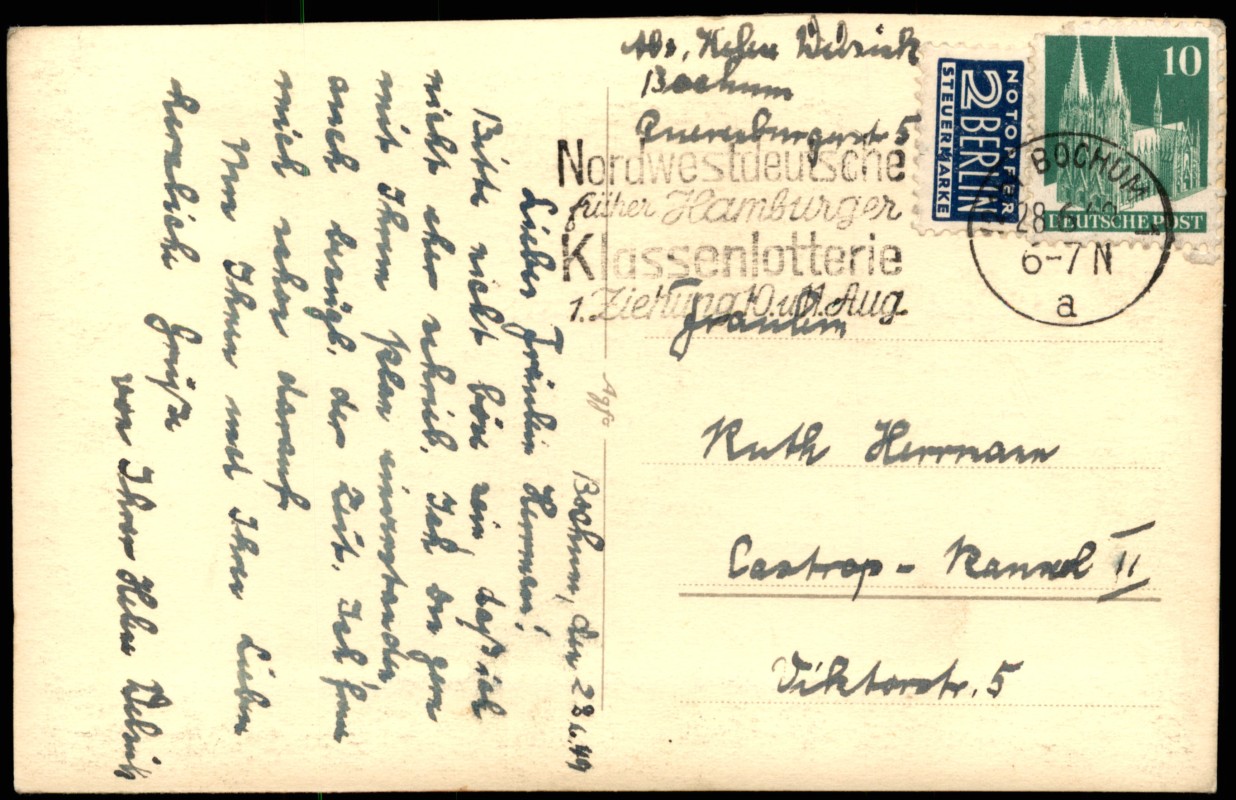 Abs. Helene
Bochum
Querenburgerstr. 5
Nordwestdeutsche
früher Hamburger
Klassenlotterie
1. Ziehung 10. u. 11. Aug.
NOTOPFER
2 BERLIN
STEUERMARKE
10
DEUTSCHE POST
BOCHUM
28.6.49
6-7 N
a
Fräulein
Ruth Herrmann
Castrop-Rauxel II
Viktorstr. 5
Agfa
Bochum, den 28.6.49
Liebes Fräulein Herrmann!
Bitte nicht böse sein daß ich
nicht eher schrieb. Ich bin gern
mit Ihrem Plan einverstanden
auch bezügl. der Zeit. Ich freue
mich schon darauf.
Nun Ihnen und Ihren Lieben
herzliche Grüße
von Ihrer Helene